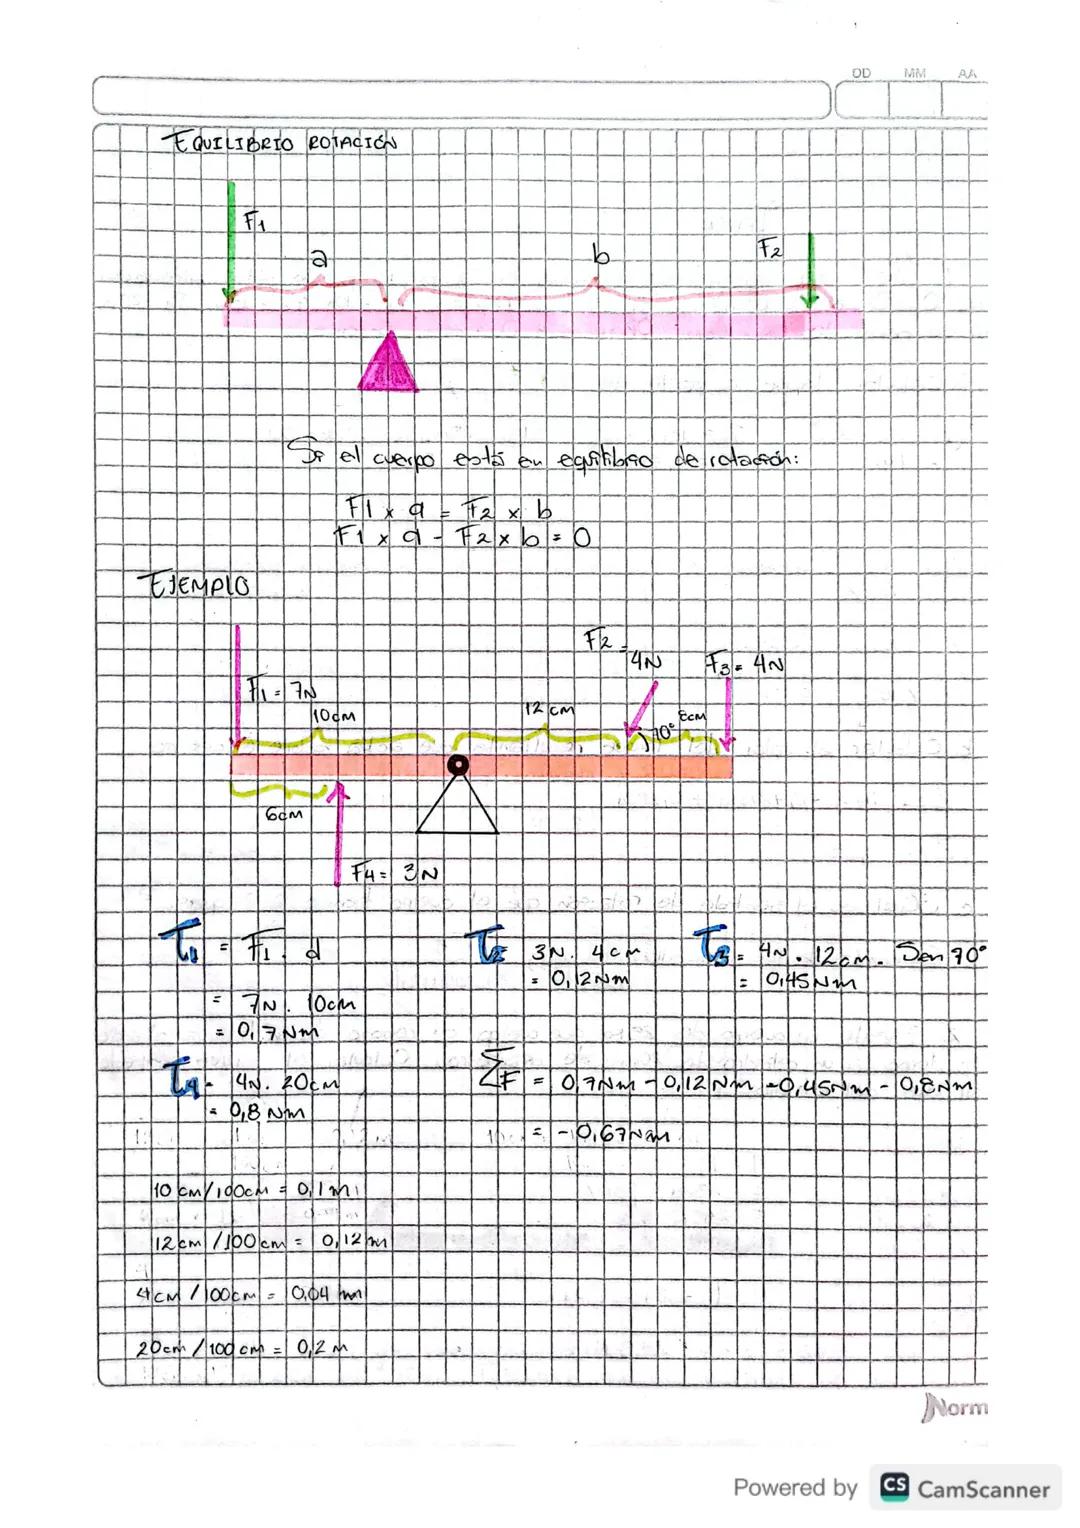 DD MM AA
EQUILIBRIO ROTACIÓN
F1
a
b
F2
Si el cuerpo está en equilibrio de rotación:
F1 x a = F2 x b
F1 x a - F2 x b = 0
EJEMPLO
F2 = 4N
F3 = 4N
F1 = 7N
10cm
12 cm
70°
8cm
6cm
F4 = 3N
τ1 = F1 . d
= 7N . 10cm
= 0,7 Nm
τ2 3N . 4cm
= 0,12Nm
τ3 = 4N . 12cm . Sen 70°
= 0,45Nm
τ4 = 4N . 20cm
= 0,8 Nm
ΣF = 0,7Nm - 0,12Nm - 0,45Nm - 0,8Nm
= - 0,67Nm
10 cm/100cm = 0,1m
12cm /100cm = 0,12m
4cm /100cm = 0,04 m
20cm /100cm = 0,2 m
Norm
Powered by CS CamScanner